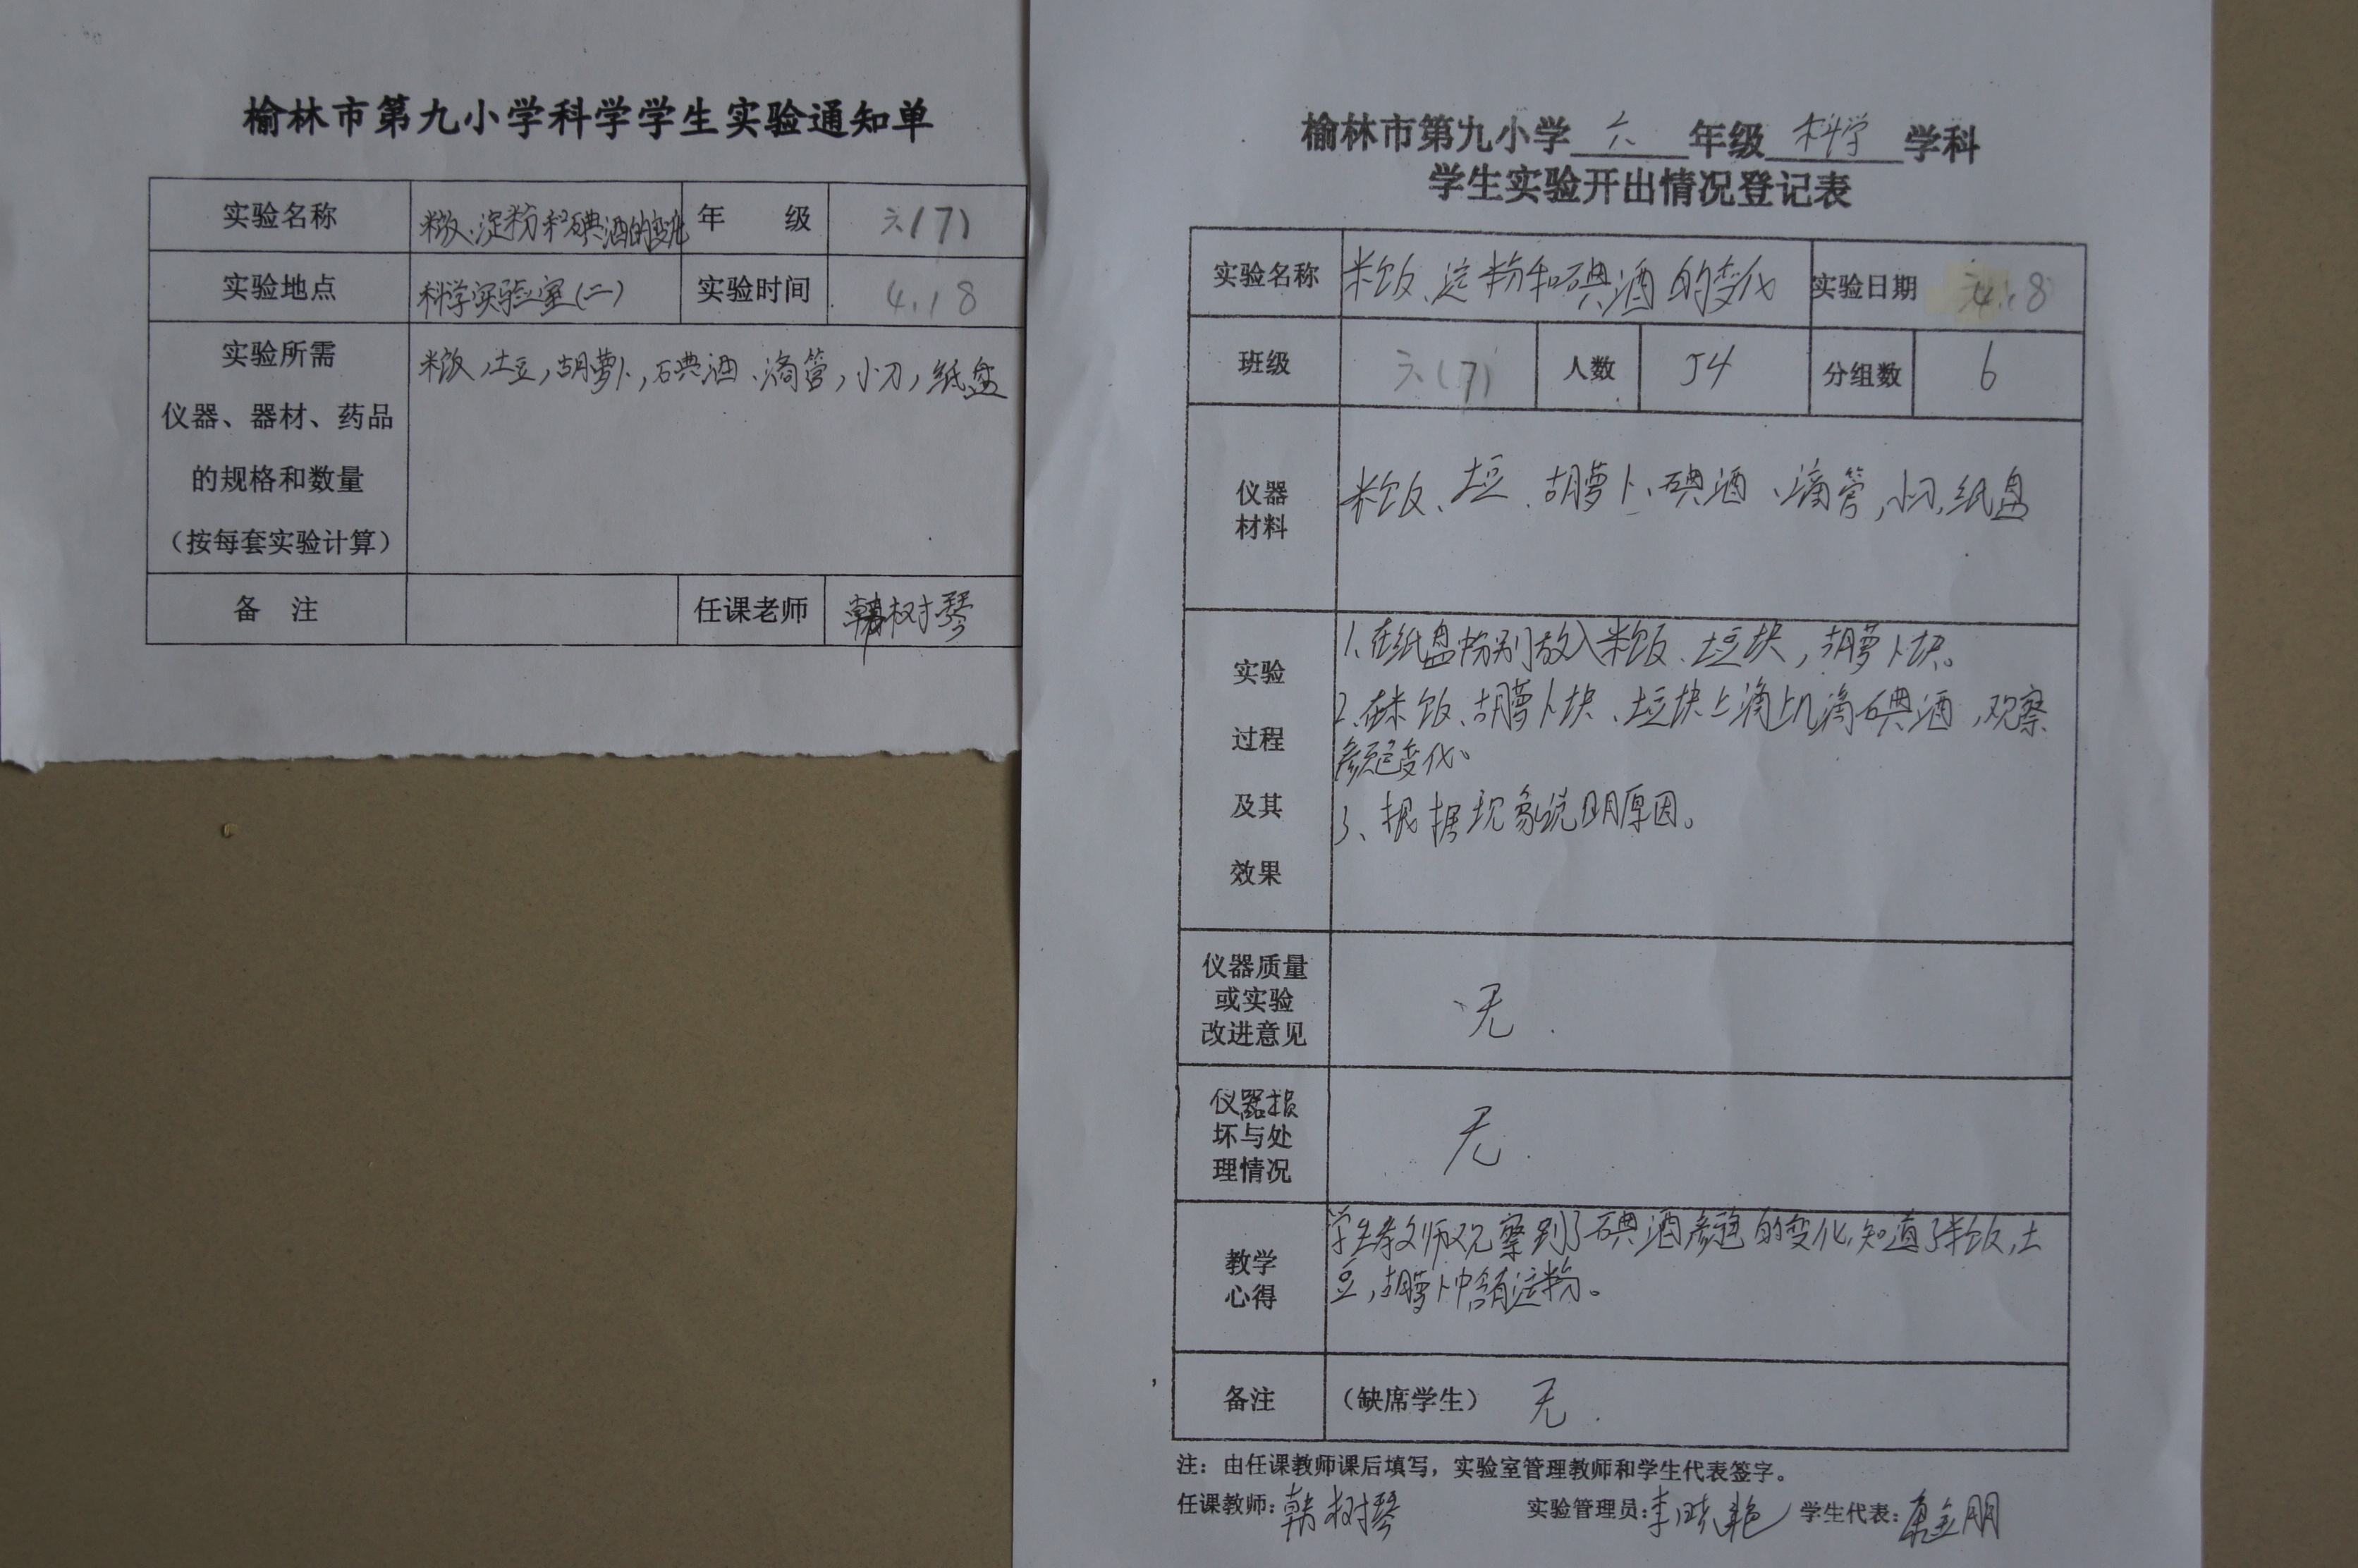 榆林市第九小学科学学生实验通知单
实验名称 米饭、淀粉和碘酒的变化 年 级 六(7)
实验地点 科学实验室(二) 实验时间 4.18
实验所需
仪器、器材、药品
的规格和数量
(按每套实验计算)
米饭,土豆,胡萝卜,碘酒、滴管,小刀,纸盘
备 注 任课老师 韩树琴
榆林市第九小学 六 年级 科学 学科
学生实验开出情况登记表
实验名称 米饭、淀粉和碘酒的变化 实验日期 4.18
班级 六(7) 人数 54 分组数 6
仪器
材料
米饭、土豆、胡萝卜、碘酒、滴管,小刀,纸盘
实验
过程
及其
效果
1、在纸盘中分别放入米饭、土豆块,胡萝卜块。
2、在米饭、胡萝卜块、土豆块上滴上几滴碘酒,观察
颜色变化。
3、根据现象说明原因。
仪器质量
或实验
改进意见
无.
仪器损
坏与处
理情况
无.
教学
心得
学生教师观察到了碘酒颜色的变化,知道了米饭,土
豆,胡萝卜中含有淀粉。
备注 (缺席学生) 无.
注:由任课教师课后填写,实验室管理教师和学生代表签字。
任课教师:韩树琴 实验管理员:李晓艳 学生代表: